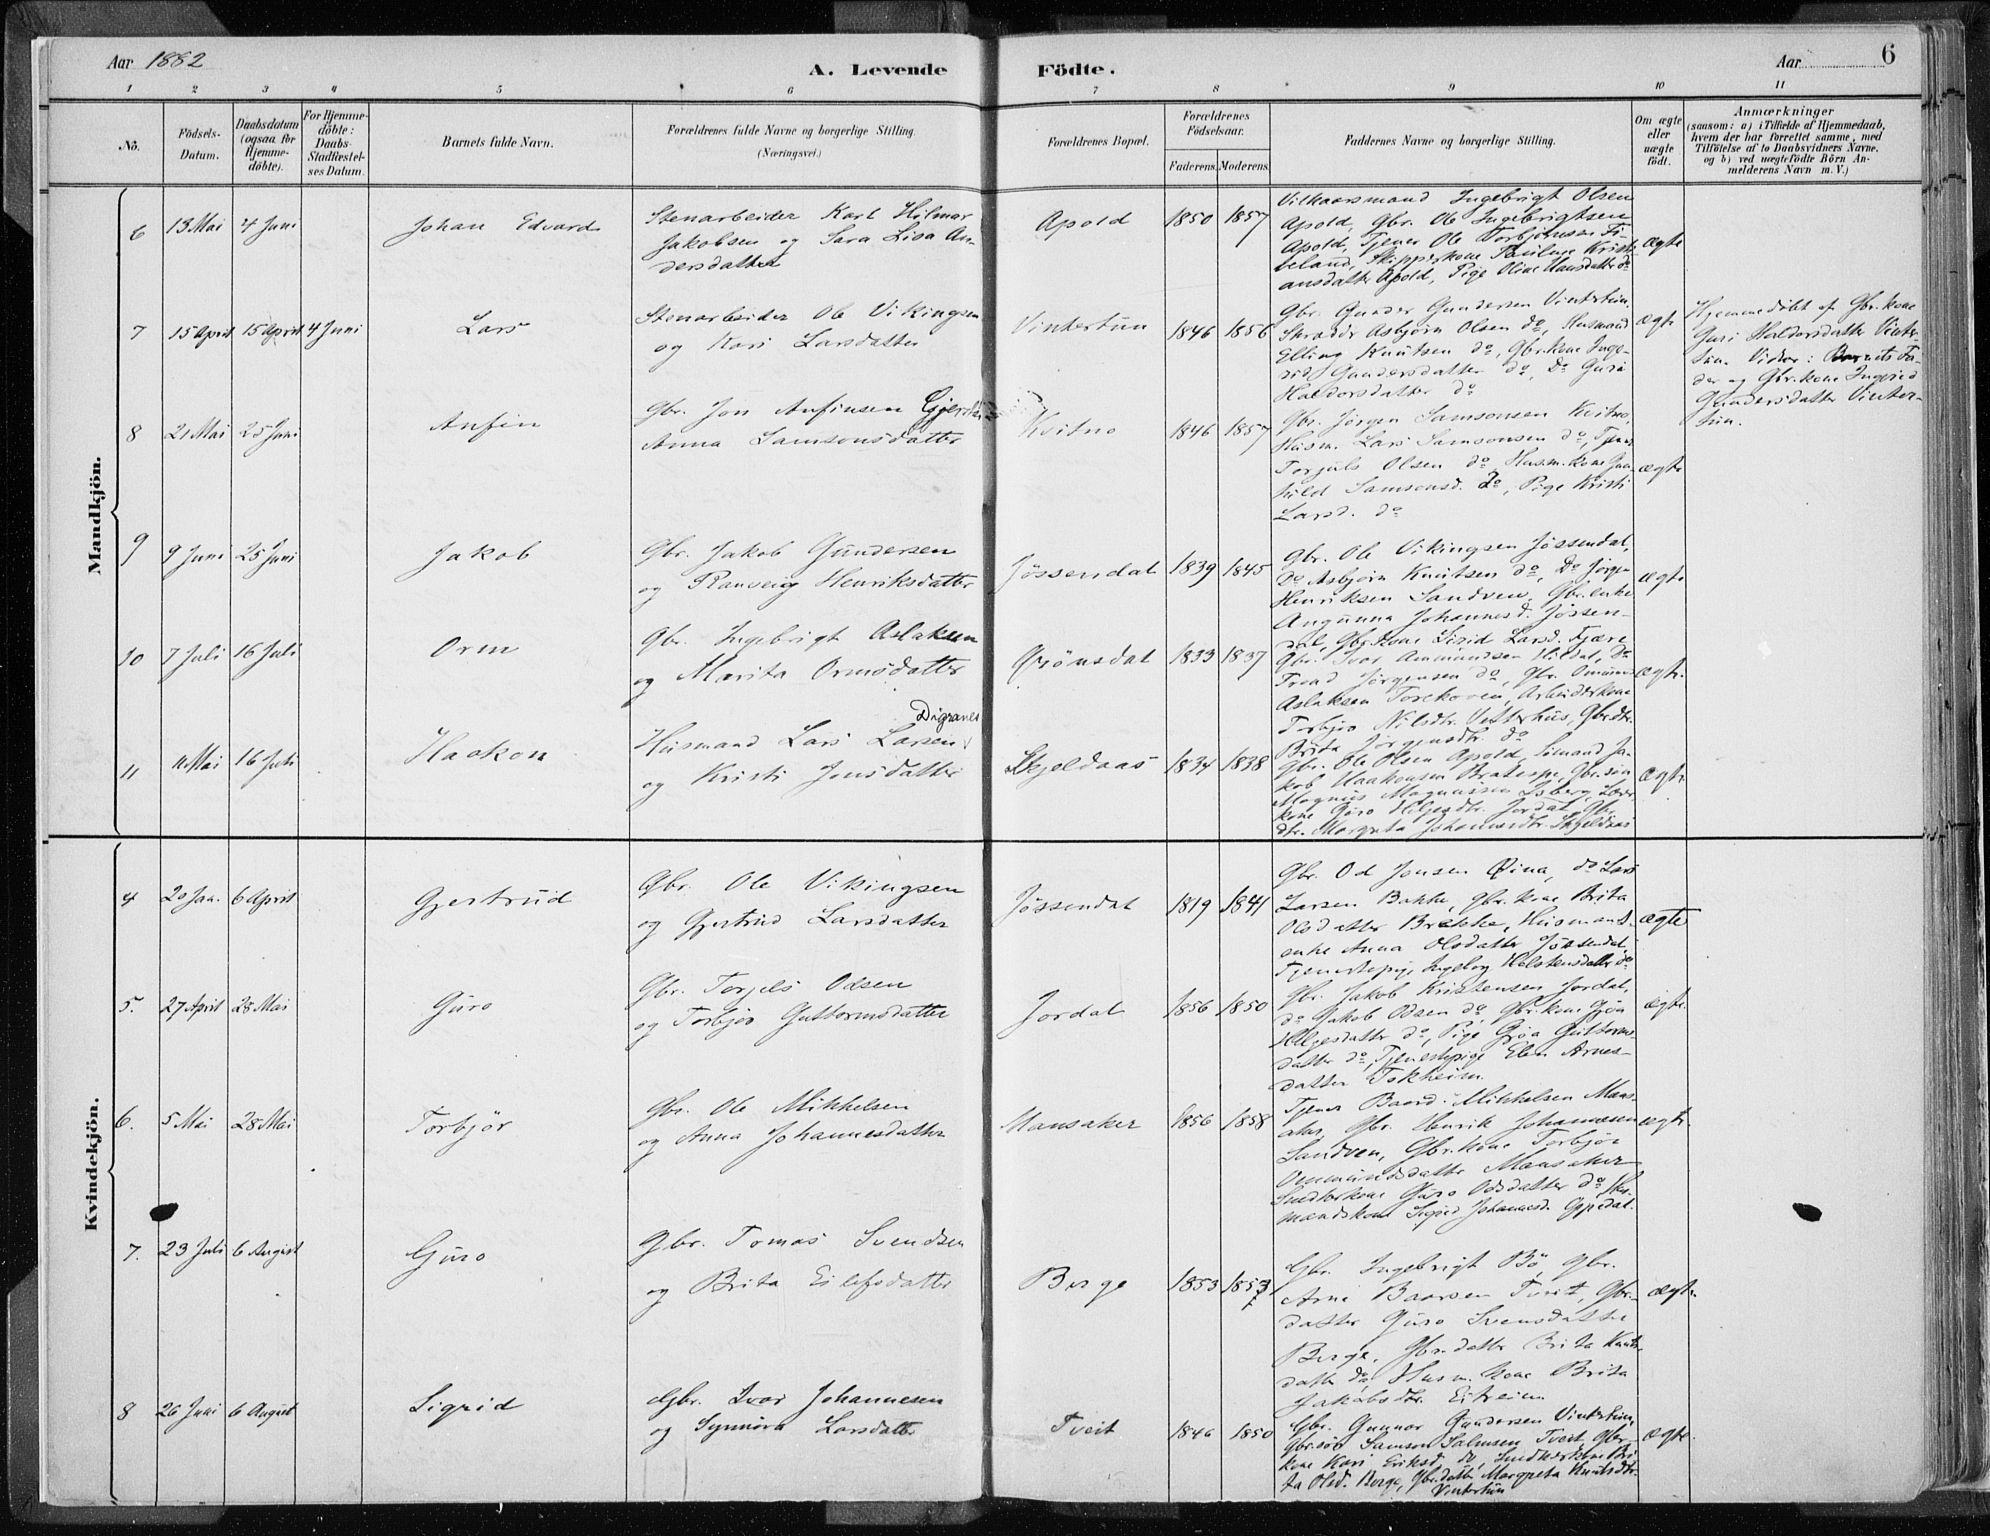 Aar 1882
A. Levende
Födte.
Aar 6
1 2 3 4 5 6 7 8 9 10 11
No.
Födsels-
Datum.
Daabsdatum
(ogsaa for
Hjemme-
döbte).
For Hjemme-
döbte:
Daabs-
Stadfæstel-
ses Datum.
Barnets fulde Navn.
Forældrenes fulde Navne og borgerlige Stilling.
(Næringsvei.)
Forældrenes Bopæl.
Forældrenes
Födselsaar.
Faderens. Moderens.
Faddernes Navne og borgerlige Stilling.
Om ægte
eller
uægte
födt.
Anmærkninger
(saasom: a) i Tilfælde af Hjemmedaab,
hvem der har forrettet samme, med
Tilföielse af to Daabsvidners Navne,
og b) ved uægtefödte Börn An-
melderens Navn m. V.)
Mandkjön.
6 13 Mai 4 Juni
Johan Edvard
Stenarbeider Karl Hilmar
Jakobsen og Sara Lisa An-
dersdatter
Apold
1850 1857
Vilkaarsmand Ingebrigt Olsen
Apold, Gbr. Ole Ingebrigtsen
Apold, Tjener Ole Torbjörnsen
Skipperkone Pauline Kristi-
ansdatter Apold, Pige Oline Hansdatter do
ægte
7 15 April 15 April 4 Juni
Lars
Stenarbeider Ole Vikingsen
og Kari Larsdatter
Vintertun
1846 1856
Gbr. Gunder Gundersen Vintertun,
Skrædder Asbjörn Olsen do, Husmand
Elling Knutsen do, Gbr.kone Inge-
rid Gundersdatter do, Do Guri
Haldorsdatter do
ægte
Hjemmedöbt af Gbr.kone
Guri Haldorsdatter Vinter-
tun. Vidner: Barnets Fa-
der og Gbr.kone Ingrid
Gundersdatter Vinter-
tun.
8 21 Mai 25 Juni
Anfin
Gbr. Jon Anfinsen
Anna Samsonsdatter
Kvitno
1846 1857
Gbr. Jörgen Samsonsen Kvitno,
Husm. Lars Samsonsen do, Tjener
Torjuls Olsen do, Husm.kone Gun-
hild Samsonsd. do, Pige Kristi
Larsd. do
ægte
9 9 Juni 25 Juni
Jakob
Gbr. Jakob Gundersen
og Ranveig Henriksdatter
Jössendal
1839 1845
Gbr. Ole Vikingsen Jössendal,
Do Asbjörn Knutsen do, Do Jörgen
Henriksen Sandven, Gbr.enke
Angunna Johannesd. Jössen-
dal, Gbr.kone Sigrid Larsd. Tjære
ægte
10 7 Juli 16 Juli
Orm
Gbr. Ingebrigt Aslaksen
og Marita Ormsdatter
Grönsdal
1833 1837
Gbr. Ivar Aamundsen Hildal, Do
Trond Jörgensen do, Gbr.
Aslaksen Arbeiderkone
Torbjör Nilsdtr. Vetterhus, Gbr.dtr.
Brita Jörgensdtr. do
ægte.
11 11 Mai 16 Juli
Haakon
Digranes
Husmand Lars Larsen
og Kristi Jonsdatter
Skjeldaas
1834 1838
Gbr. Ole Olsen Apold, Sömand Ja-
kob Haakonsen Gbr.sön
Magnus Magnussen Isberg,
kone Guro Helgesdtr. Jordal, Gbr.
dtr. Margreta Johannesdtr. Skjeldaas
ægte
Kvindekjön.
4 20 Jan. 6 April
Gjertrud
Gbr. Ole Vikingsen
og Gjertrud Larsdatter
Jössendal
1819 1841
Gbr. Od Jonsen do Lars
Larsen Bakke, Gbr.kone Brita
Olsdatter Bakke, Husmands-
enke Anna Olsdatter Jössendal,
Tjenestepige Ingeborg Halstensdatter do
ægte
5. 27 April 28 Mai
Guro
Gbr. Torjels Odsen
og Torbjör Guttormsdatter
Jordal
1856 1850
Gbr. Jakob Kristensen Jordal,
do Jakob Odsen do, Gbr.kone Gjöa
Helgesdatter do, Pige Gjöa Guttorms-
datter do, Tjenestepige Elen Arnes-
datter Tokheim
ægte.
6. 5 Mai 28 Mai
Torbjör
Gbr. Ole Mikkelsen
og Anna Johannesdatter
Mansaker
1856 1858
Tjener Baard Mikkelsen Mans-
aker, Gbr. Henrik Johannesen
Sandven, Gbr.kone Torbjör
Ommundsdatter Mansaker
Smedkone Guro Odsdatter do, Hus-
mandskone Sigrid Johannesd.
ægte.
7. 23 Juli 6 August
Guro
Gbr. Tomas Svendsen
og Brita Eilefsdatter
Berge
1853 1853
Gbr. Ingebrigt Bö, Gbr.
Arne Baarsen Tveit, Gbr.
datter Guro Svensdatter
Berge, Gbr.datter Brita Knuts-
datter do, Husm.kone Brita
Jakobsdtr. Eitreim
ægte.
8 26 Juni 6 August
Sigrid
Gbr. Ivar Johannesen
og Synnöva Larsdatter
Tveit
1846 1850
Gbr. Gunnar Gundersen Vintertun,
Gbr.sön Samson Salmsen Tveit, Gbr.
kone Kari Eriksd. do, Smedkone Bri-
ta Olsd. Berge, Gbr.datter Margreta Knutsdtr.
Vintertun
ægte.